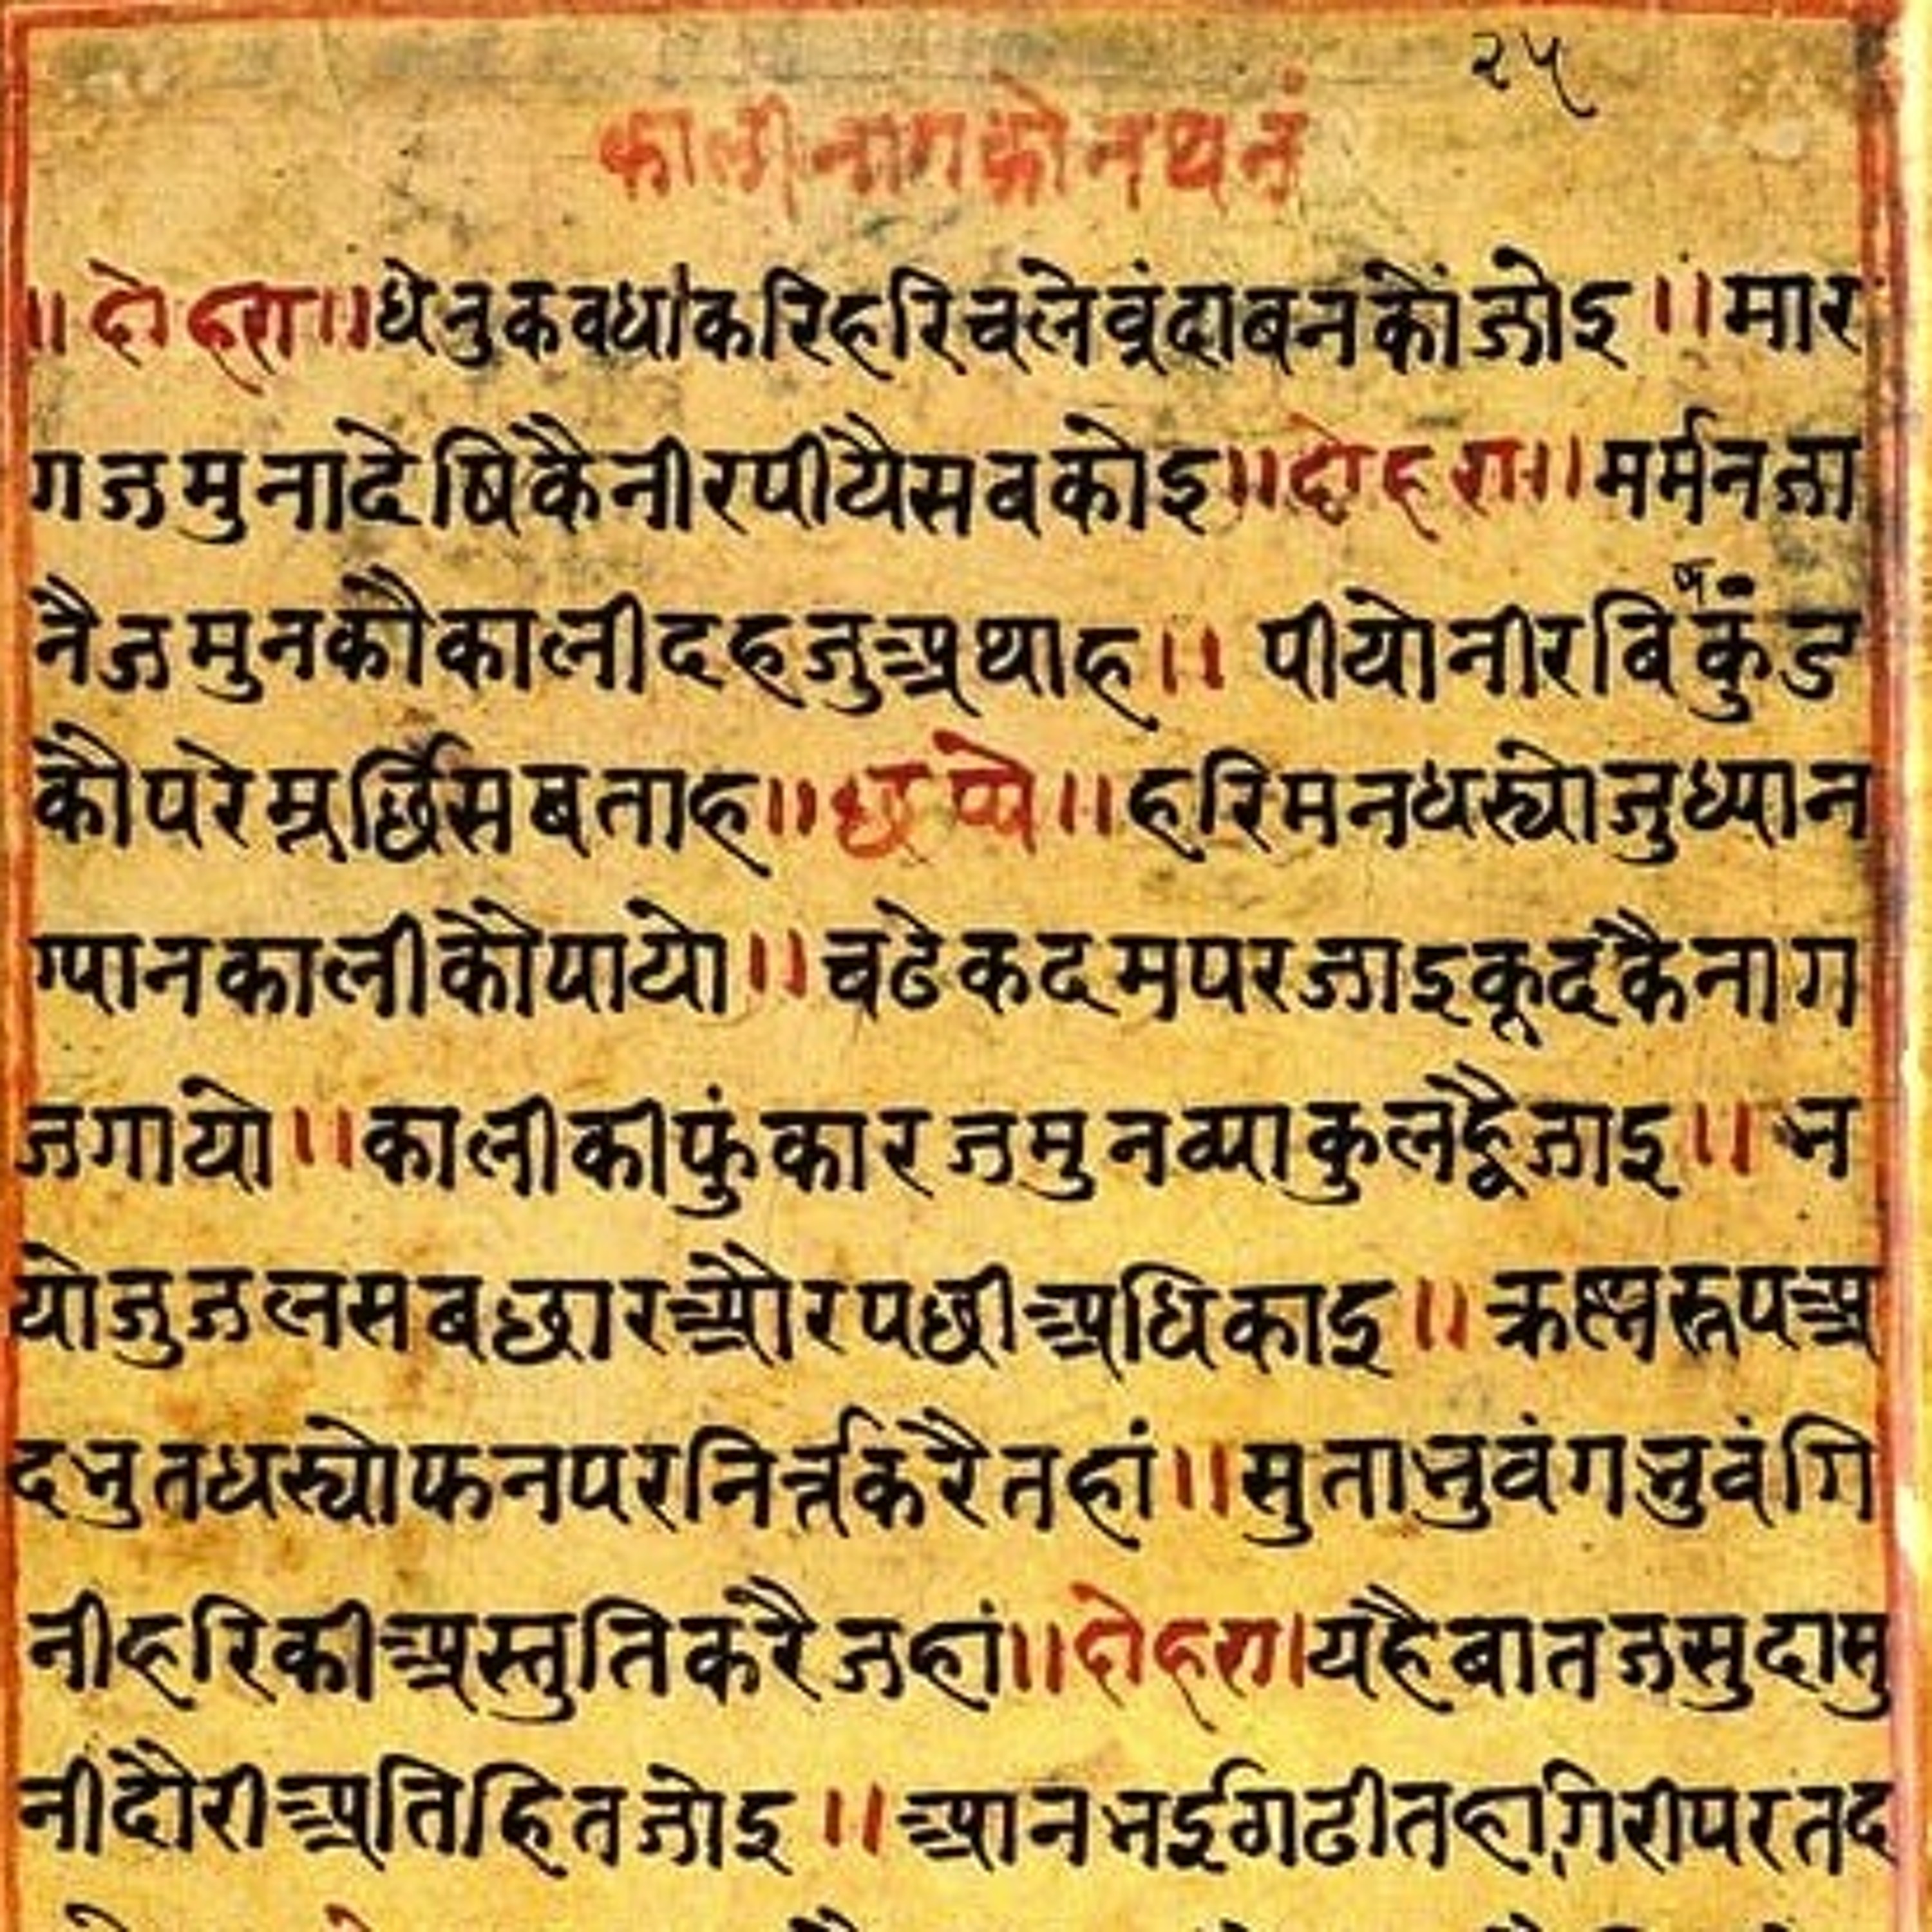 २५
कालीनागकोनथनं
॥दोहरा॥धेनुकवधकरिहरिचलेव्रंदाबनकोंजोइ॥मार
गजमुनादेषिकैनीरपीयैसबकोइ॥दोहरा॥मर्मनजा
नैजमुनकौकालीदहजुअथाह॥पीयोनीरबिकुंड
कौपरेमूर्छिसबताह॥छप्पे॥हरिमनधस्योजुध्यान
ग्यानकालीकौपायो॥चढेकदमपरजाइकूदकैनाग
जगायो॥कालीकीफुंकारजमुनव्याकुलह्वैजाइ॥भ
योजुजलसबछारऔरपछीअधिकाइ॥क्रष्णरूपअ
दभुतधस्योफनपरनिर्त्तकरैतहां॥सुताभुवंगभुवंगि
नीहरिकीअस्तुतिकरैजहां॥दोहरा।यहैबातजसुदासु
नीदौरीअतिहितजोइ॥आनभईगढीतहांगिरीपरतद